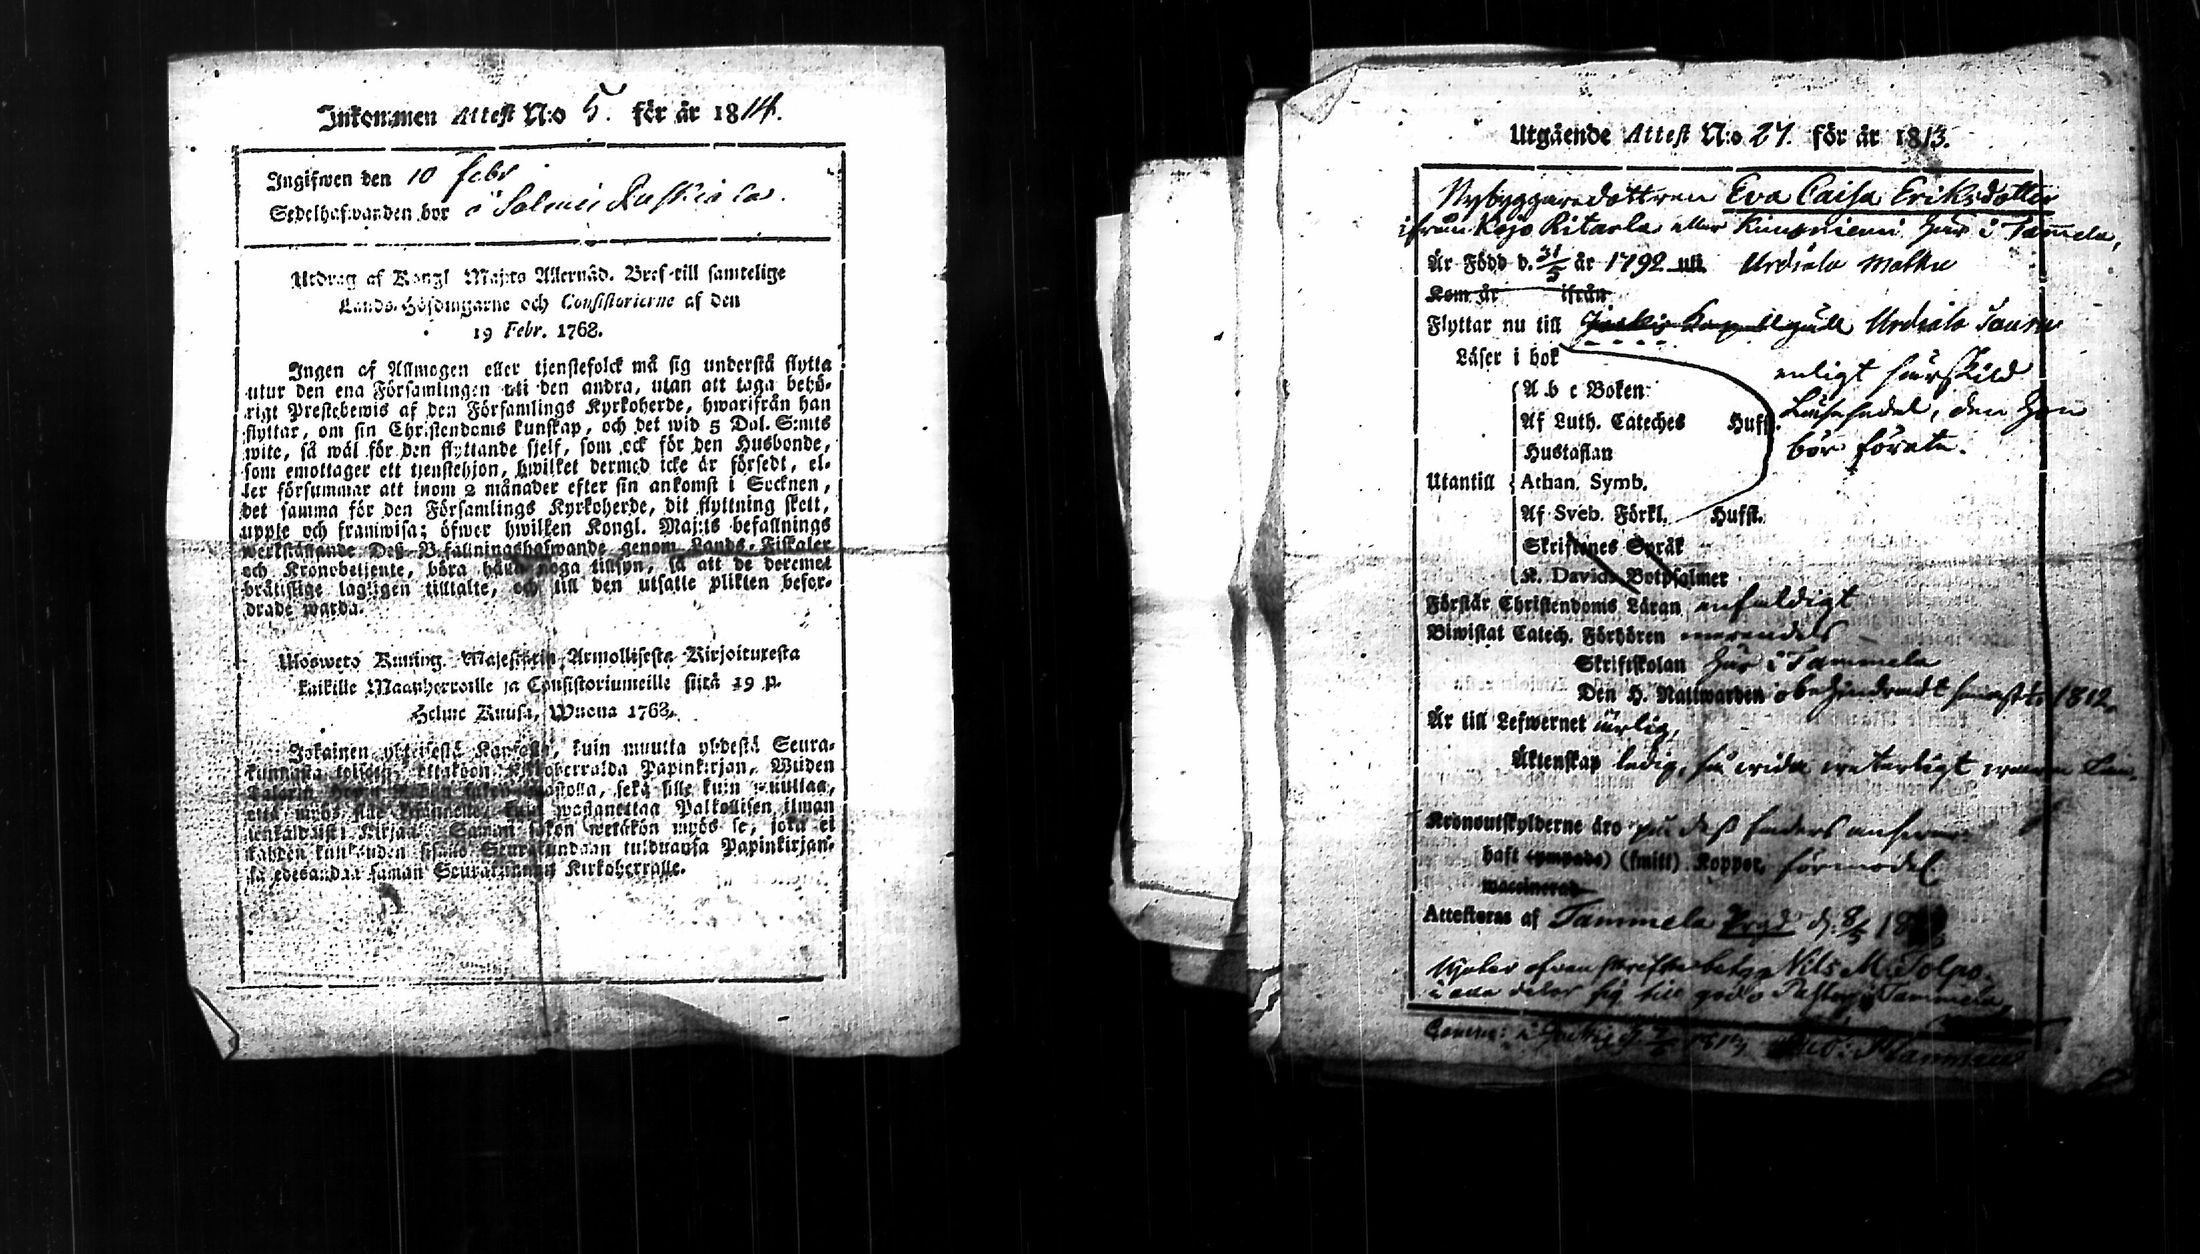 Inkommen Attest N:o 5. för år 1814.
Ingifwen den 10 febr
Sedelhafwanden bor i Salmi
Utdrag af Kongl Maj:ts Allernåd. Bref till samtelige
Lands-Höfdingarne och Consistorierne af den
19 Febr. 1768.
Ingen af Allmogen eller tjenstefolck må sig understå flytta
utur den ena Församlingen till den andra, utan att taga behö-
rigt Prestebewis af den Församlings Kyrkoherde, hwarifrån han
flyttar, om sin Christendoms kunskap, och det wid 5 Dal. S:mts
wite, så wäl för den flyttande sjelf, som ock för den Husbonde,
som emottager ett tjenstehjon, hwilket dermed icke är försedt, el-
ler försummar att inom 2 månader efter sin ankomst i Socknen,
det samma för den Församlings Kyrkoherde, dit flyttning skett,
uppte och framwisa; öfwer hwilken Kongl. Maj:ts befallnings
werkställande Deß Befallningshafwande genom Lands-Fiskaler
och Kronobetjente, böra hålla noga tillsyn, så att de deremot
brätslige lagligen tilltalte, och till den utsatte plikten befor-
drade warda.
Ulosweto Kuning. Majestetin Armollisesta Kirjoituxesta
kaikille Maanherroille ja Consistoriumeille siitä 19 p.
Helme Kuusa, Wuonna 1768.
Jokainen yhteisestä Kansasta, kuin muutta yhdestä Seura-
kunnasta toiseen, ottakoon Kirkoherralda Papinkirjan, Wiiden
sekä sille kuin muuttaa,
että myös sille wastanottaa Palkollisen ilman
senkaldaist Kirjaa. Saman sakon wetäkön myös se, joka ei
kahden kuukauden sisällä Seurakundaan tulduansa Papinkirjan-
sa edesanda saman Seurakunnan Kirkoherralle.
Utgående Attest N:o 27. för år 1813.
Nybyggaredottren Eva Caisa Eriksdotter
ifrån Kojo Ritarla eller här i Tammela,
Är Född d. 31/5 år 1792 uti Urdiala Matku
Kom år ifrån
Flyttar nu till Urdiala
Läser i bok
enligt särskild
A b c Boken
Läsesedel, den hon
Af Luth. Cateches Hufst.
bör förete.
Hustaflan
Utantill Athan. Symb.
Af Sveb. Förkl. Hufst.
Skriftenes Språk
K. Davids Botpsalmer
Förstår Christendoms Läran enfaldigt
Biwistat Catech. Förhören merendels
Skriftskolan här i Tammela
Den H. Nattwarden obehindradt senast 1812.
Är till Lefwernet ärlig,
Äktenskap ledig, så wida weterligt
Kronoutskylderne äro på deß faders answar
haft (ympade) (smitt) Koppor, förmodel.
waccinerad
Attesteras af Tammela Prgd d. 8/5 18
Nils M. Tolpo.
Pastor i Tammela